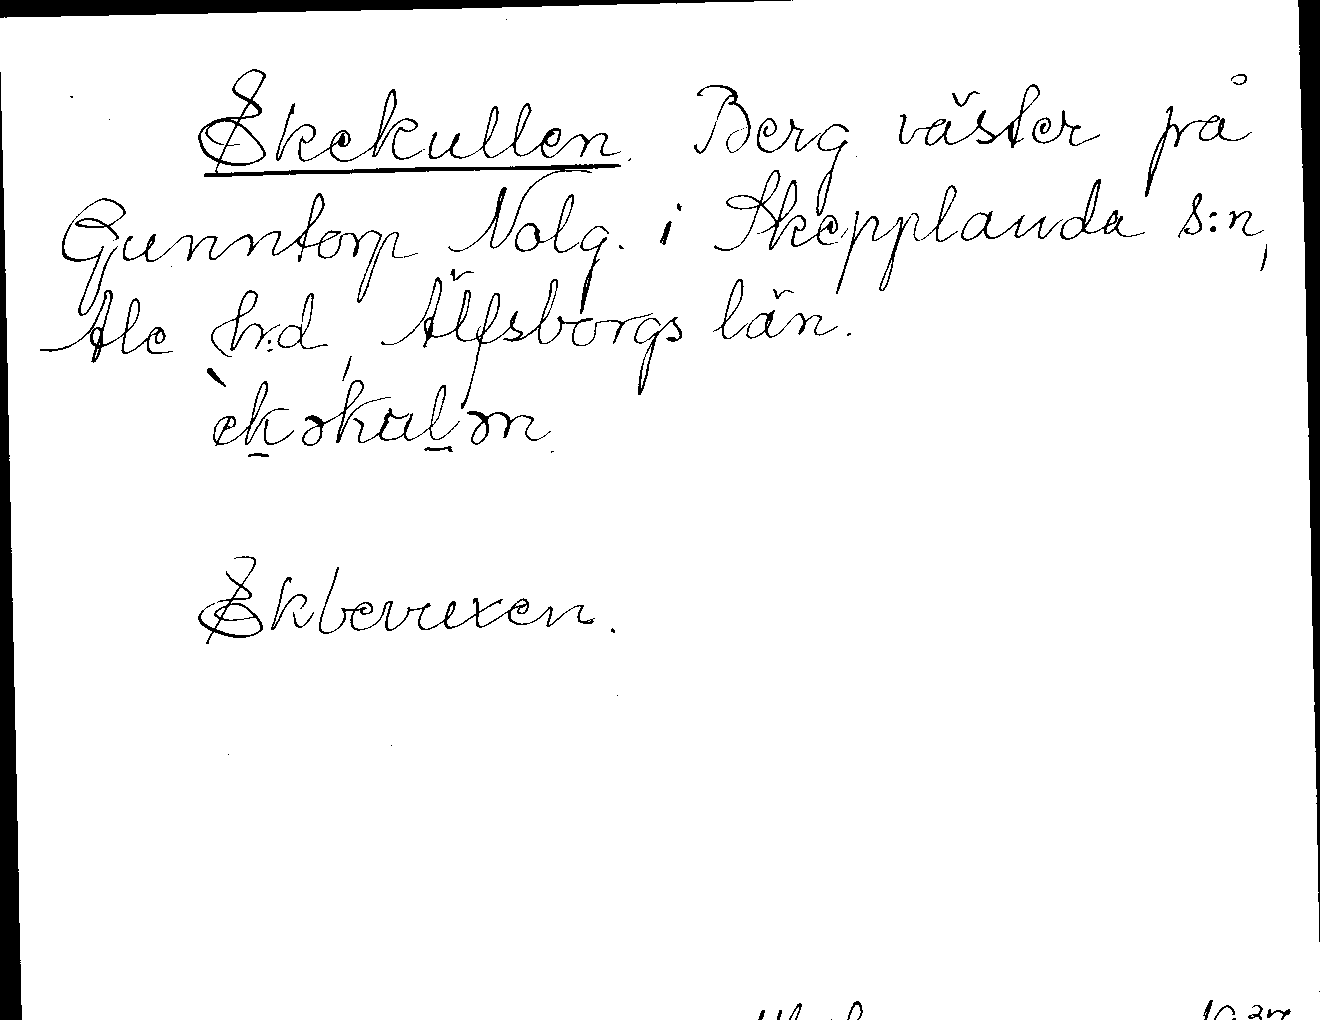 Ekekullen. Berg väster på
Gunntorp Nolg. i Skepplanda s:n,
Ale hrd, Älfsborgs län.
èk̲əkul̲ən
Ekbevuxen.